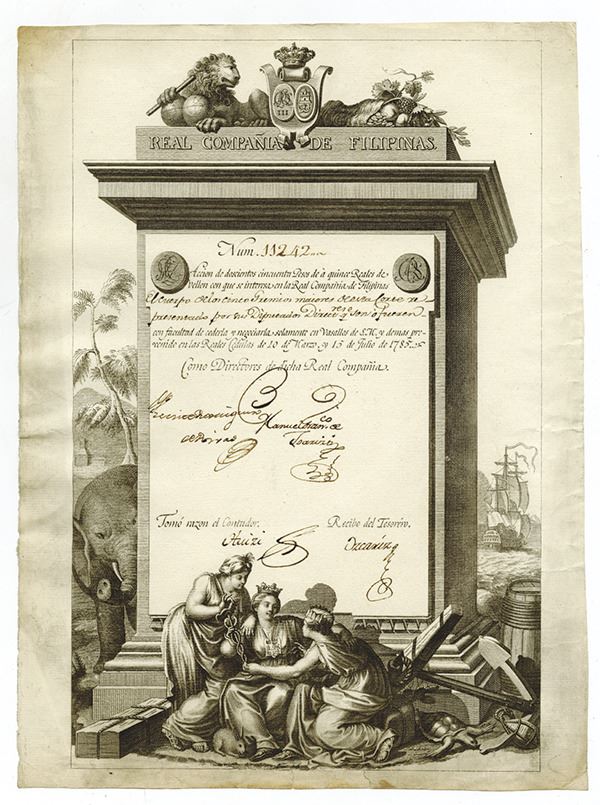 REAL COMPAÑIA DE FILIPINAS.
III
Num. 11242
Accion de doscientos cincuenta Pesos de á quince Reales de
vellon con que se interesa en la Real Compañia de Filipinas
El Cuerpo de los cinco Gremios maiores de esta Corte re
presentado por sus Diputados Direc.res y son o fueren
con facultad de cederla y negociarla solamente en Vasallos de S.M. y demas pre
venido en las Reales Cedulas de 10 de Marzo, y 15 de Julio de 1785.
Como Directores de dicha Real Compañia.
Manuel Fran.co de
Tomó razon el Contador.
Recibo del Tesorero.